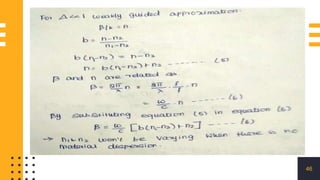 For Δ<<1 weakly guided approximation.
β/k = n
b = n-n₂ / n₁-n₂
b(n₁-n₂) = n-n₂
n = b(n₁-n₂)+n₂ ------- (5)
β and n are related as
β = 2π/λ n = 2π/λ · f/f · n
= ω/c · n ------- (6)
By substituting equation (5) in equation (6)
β = ω/c [b(n₁-n₂)+n₂] ---- (6)
→ n₁ & n₂ won't be varying when there is no
material dispersion.
46